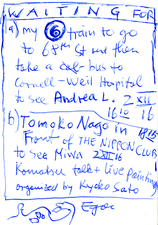 WAITING FOR
a) my 6 train to go
to 68th St and then
take a cab-bus to
Cornell-Weil Hospital
to see Andrea L. 2 XII
16 10 16
b) Tomoko Nago in 18 15
Front of THE NIPPON CLUB
to see Miwa 2 XII 16
Komatsu talk + live painting
organized by Kyoko Sato